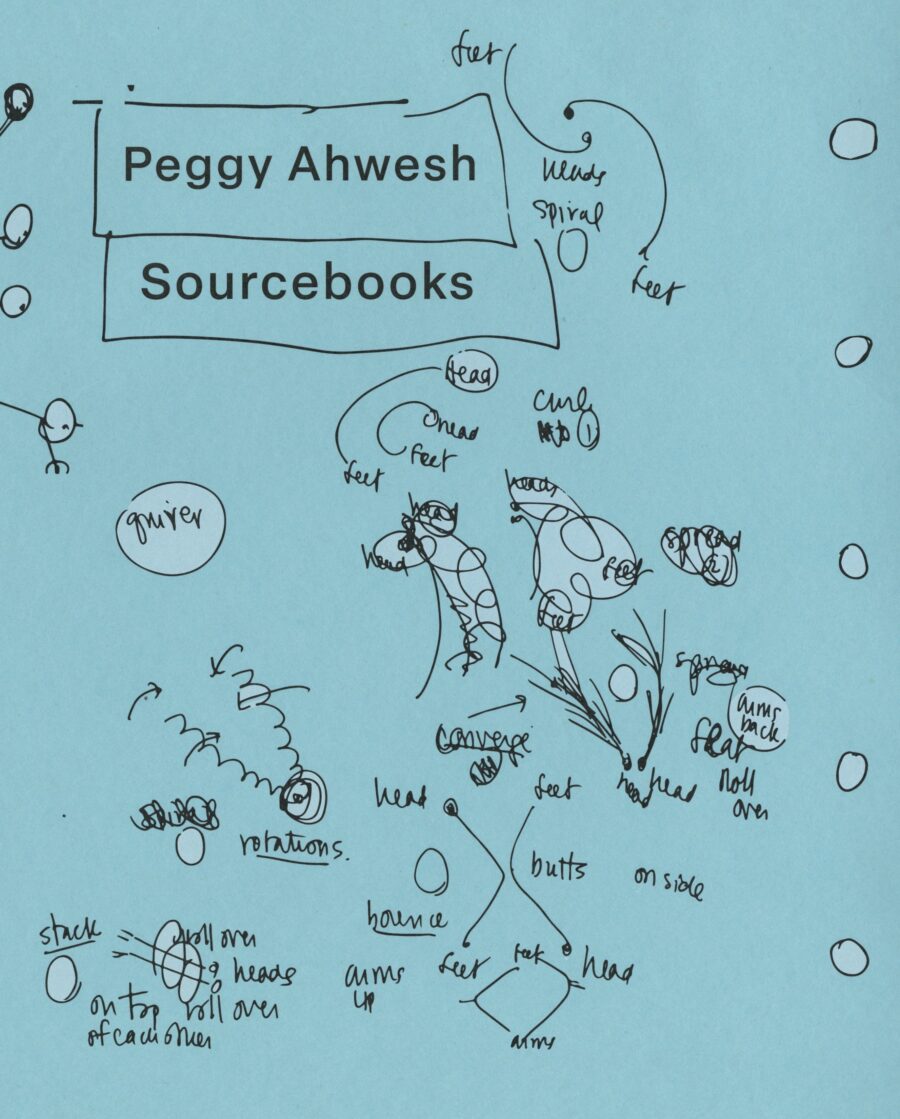 feet
Peggy Ahwesh
heads
spiral
Sourcebooks
feet
head
curl
1
head
feet
feet
heads
head
quiver
head
spread
2
feet
feet
arms
back
converge
flat
head
feet
head
head
roll
over
rotations.
butts
on side
bounce
stack
roll over
heads
arms
up
feet
feet
head
on top
roll over
of each other
arms